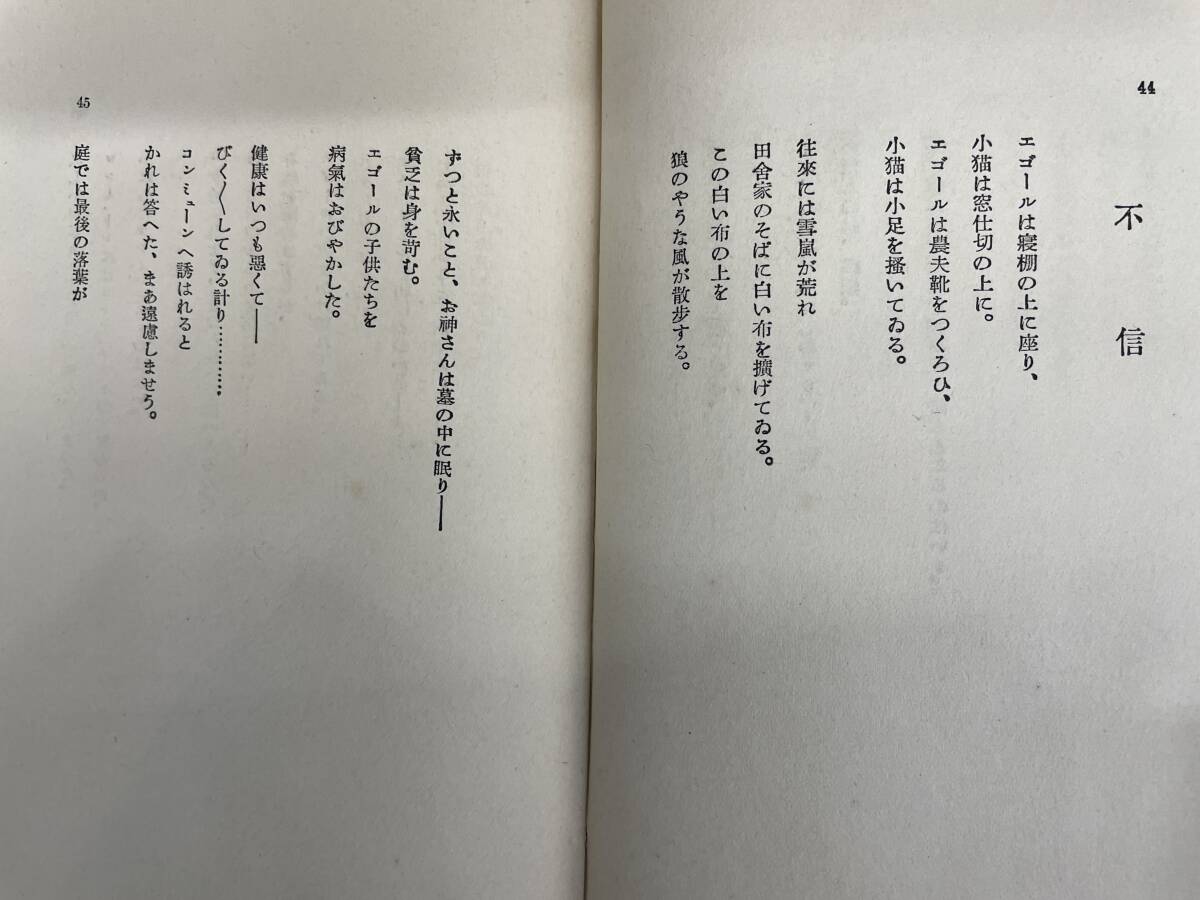 44
不信
エゴールは寢棚の上に座り、
小猫は窓仕切の上に。
エゴールは農夫靴をつくろひ、
小猫は小足を搔いてゐる。
往來には雪嵐が荒れ
田舍家のそばに白い布を擴げてゐる。
この白い布の上を
狼のやうな風が散步する。
45
ずつと永いこと、お神さんは墓の中に眠り——
貧乏は身を苛む。
エゴールの子供たちを
病氣はおびやかした。
健康はいつも惡くて——
びく〱してゐる計り…………
コンミューンへ誘はれると
かれは答へた、まあ遠慮しませう。
庭では最後の落葉が